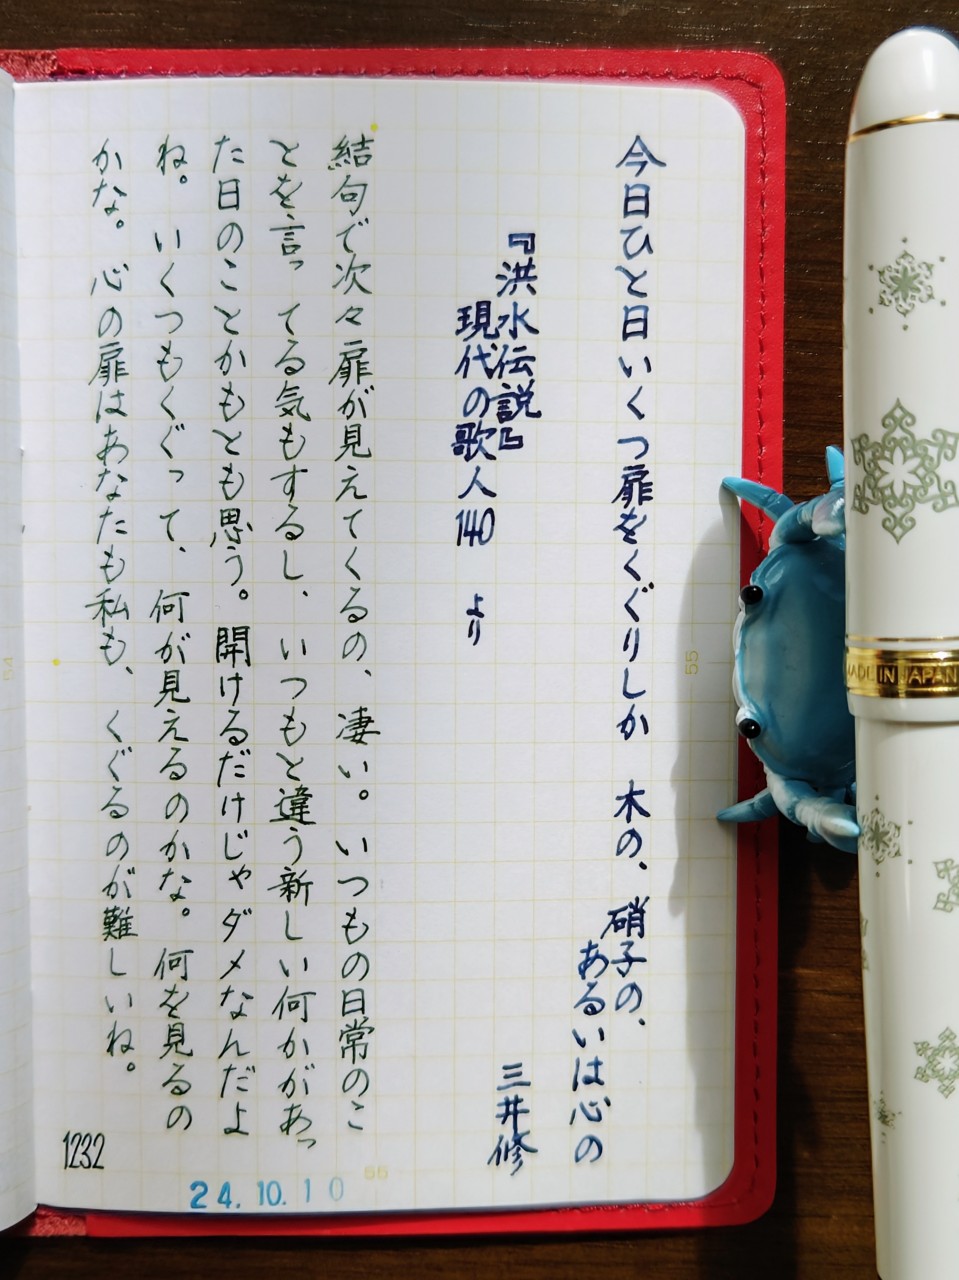 今日ひと日いくつ扉をくぐりしか　木の、硝子の、
あるいは心の
三井修
『洪水伝説』
現代の歌人140　より
結句で次々扉が見えてくるの、凄い。いつもの日常のこ
とを言ってる気もするし、いつもと違う新しい何かがあっ
た日のことかもとも思う。開けるだけじゃダメなんだよ
ね。いくつもくぐって、何が見えるのかな。何を見るの
かな。心の扉はあなたも私も、くぐるのが難しいね。
1232
24.10.10
55
56
54
MADE IN JAPAN